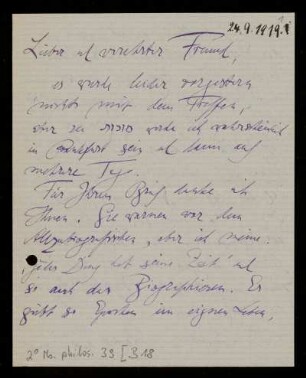 24.9.1919.
Lieber und verehrter Freund,
es wurde leider vorgestern
nichts mit dem Treffen,
aber zu werde ich wahrscheinlich
in Frankfurt sein und kann auf
mehrere Tage.
Für Ihren Brief danke ich
Ihnen. Sie warnen vor dem
Autobiografischen, aber ich meine
"jedes Ding hat seine Zeit" und
so auch das Biographische. Es
giebt so Epochen im eigenen Leben,
2° Ms. philos. 39 [B 18